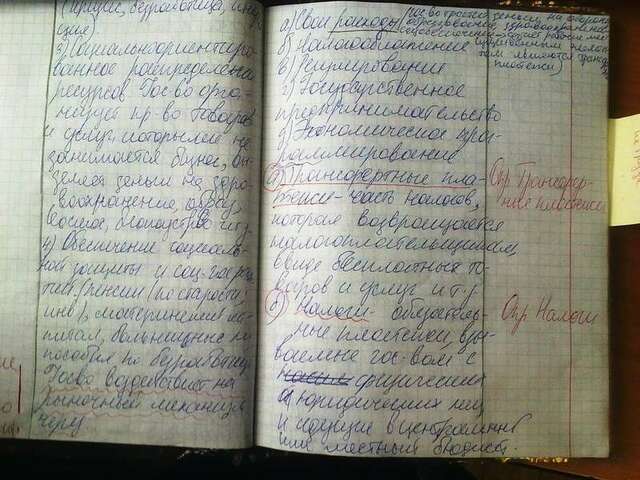 (кризис, безработица, инфля
ция)
з) Социальноориентиро
ванное распределение
ресурсов Гос-во орга
низует пр-во товаров
и услуг, которыми не
занимается бизнес, вы-
деляет деньги на здра-
воохранение, образ.,
и) Обеспечение социаль-
ной защиты и соц.
(пенсии (по старости,
инв), материнский ка-
питал, больничные
пособия по безработице
Гос-во воздействует на
рыночный механизм
через
а) Свои расходы
б) Налогообложение
в) Регулирование
г) Государственное
предпринимательство
д) Экономическое про-
граммирование
Трансфертные пла-
тежи - часть налогов,
которая возвращается
налогоплательщикам
в виде бесплатных то-
варов и услуг и т.д
Налоги - обязатель-
ные платежи, взы-
ваемые гос-вом с
физических
и юридических лиц
и идущие в центральный
или местный бюджет.
Опр. Трансфер-
тные платежи
Опр Налоги